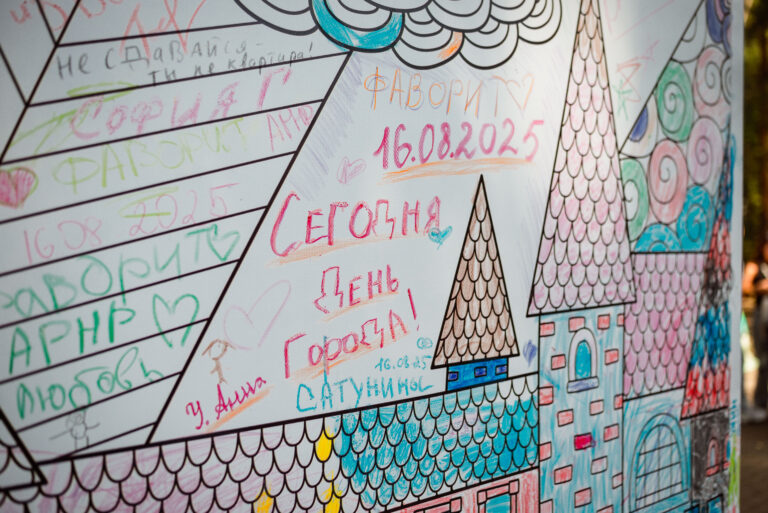 не сдавайся
ты не квартира!
София Г
ФАВОРИТ АРНР
16 08 2025
ФАВОРИТ
АРНР
Любовь
ФАВОРИТ
16.08.2025
Сегодня
День
Города!
У. Анна
16.08.25
САТУНИНЫ